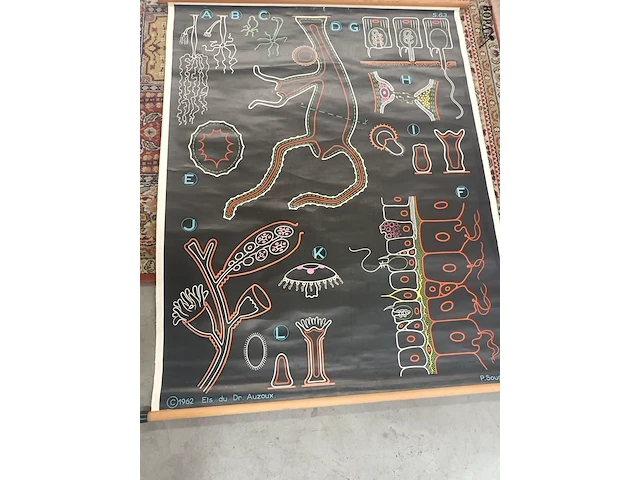 A B C D G S.63
H
I
E F
J
K
L
© 1962 Ets du Dr. Auzoux.